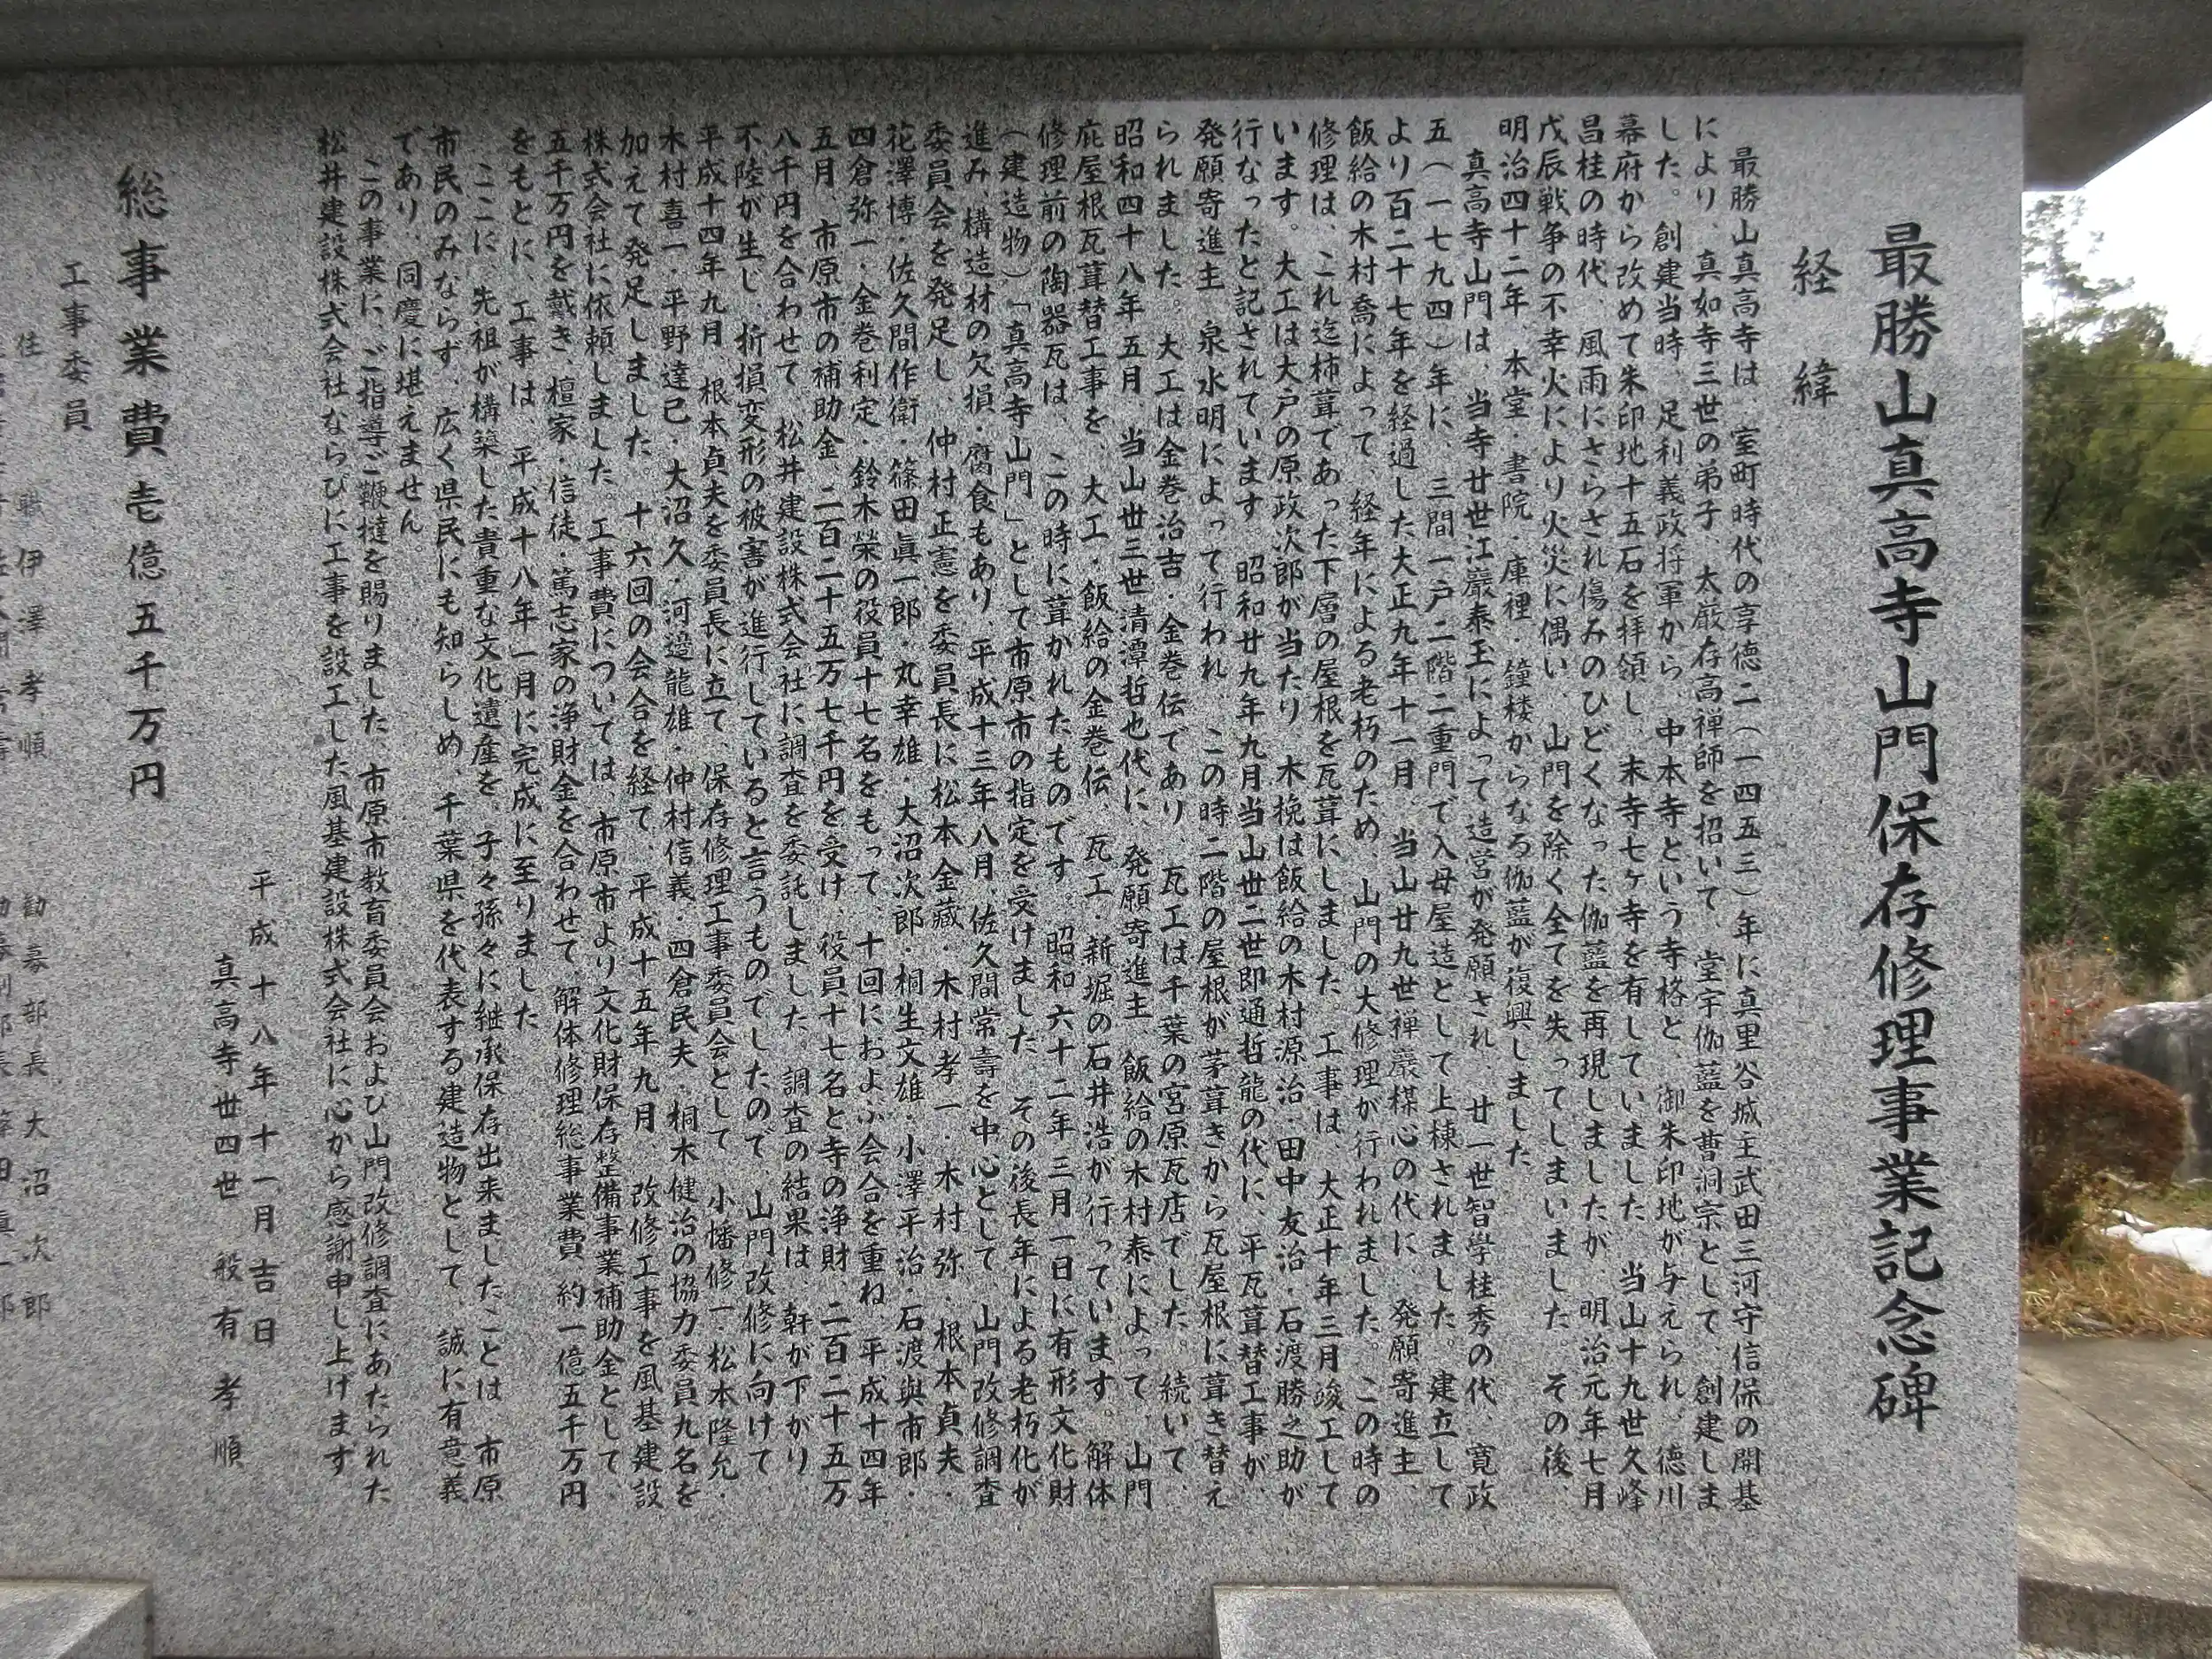 最勝山真高寺山門保存修理事業記念碑
経緯
最勝山真高寺は、室町時代の享徳二(一四五三)年に真里谷城主武田三河守信保の開基
により、真如寺三世の弟子、太巌存高禅師を招いて、堂宇伽藍を曹洞宗として、創建しま
した。創建当時、足利義政将軍から、中本寺という寺格と、御朱印地が与えられ、徳川
幕府から改めて朱印地十五石を拝領し、末寺七ヶ寺を有していました。当山十九世久峰
昌桂の時代、風雨にさらされ傷みのひどくなった伽藍を再現しましたが、明治元年七月
戊辰戦争の不幸火により火災に偶い、山門を除く全てを失ってしまいました。その後、
明治四十二年、本堂・書院・庫裡・鐘楼からなる伽藍が復興しました。
真高寺山門は、当寺廿世江巌泰玉によって造営が発願され、廿一世智学桂秀の代、寛政
五(一七九四)年に、三間一戸二階二重門で入母屋造として上棟されました。建立して
より百二十七年を経過した大正九年十一月、当山廿九世禅巌楳心の代に、発願寄進主、
飯給の木村喬によって、経年による老朽のため、山門の大修理が行われました。この時の
修理は、これ迄杮葺であった下層の屋根を瓦葺にしました。工事は、大正十年三月竣工して
います。大工は大戸の原政次郎が当たり、木挽は飯給の木村源治・田中友治・石渡勝之助が
行なったと記されています。昭和廿九年九月当山丗二世即通哲龍の代に、平瓦葺替工事が、
発願寄進主 泉水明によって行われ、この時二階の屋根が茅葺きから瓦屋根に葺き替え
られました。大工は金巻治吉・金巻伝であり、瓦工は千葉の宮原瓦店でした。続いて、
昭和四十八年五月、当山丗三世清潭哲也代に、発願寄進主 飯給の木村泰によって、山門
庇屋根瓦葺替工事を、大工・飯給の金巻伝、瓦工・新堀の石井浩が行っています。解体
修理前の陶器瓦は、この時に葺かれたものです。昭和六十二年三月一日に有形文化財
(建造物)「真高寺山門」として市原市の指定を受けました。その後長年による老朽化が
進み、構造材の欠損・腐食もあり、平成十三年八月、佐久間常壽を中心として、山門改修調査
委員会を発足し、仲村正憲を委員長に松本金藏・木村孝一・木村弥・根本貞夫・
花澤博・佐久間作衛・篠田眞一郎・丸幸雄・大沼次郎・桐生文雄・小澤平治・石渡與市郎・
四倉弥一・金巻利定・鈴木榮の役員十七名をもって、十回におよぶ会合を重ね、平成十四年
五月、市原市の補助金、二百二十五万七千円を受け、役員十七名と寺の浄財、二百二十五万
八千円を合わせて、松井建設株式会社に調査を委託しました。調査の結果は、軒が下がり、
不陸が生じ、折損変形の被害が進行していると言うものでしたので、山門改修に向けて、
平成十四年九月、根本貞夫を委員長に立て、保存修理工事委員会として、小幡修一・松本隆允・
木村喜一・平野達己・大沼久・河邉龍雄・仲村信義・四倉民夫・桐木健治の協力委員九名を
加えて発足しました。十六回の会合を経て、平成十五年九月、改修工事を風基建設
株式会社に依頼しました。工事費については、市原市より文化財保存整備事業補助金として、
五千万円を戴き、檀家・信徒・篤志家の浄財金を合わせて、解体修理総事業費、約一億五千万円
をもとに、工事は、平成十八年一月に完成に至りました。
ここに、先祖が構築した貴重な文化遺産を、子々孫々に継承保存出来ましたことは、市原
市民のみならず、広く県民にも知らしめ、千葉県を代表する建造物として、誠に有意義
であり、同慶に堪えません。
この事業に、ご指導ご鞭撻を賜りました、市原市教育委員会および山門改修調査にあたられた
松井建設株式会社ならびに工事を設工した風基建設株式会社に心から感謝申し上げます
平成十八年十一月吉日
真高寺丗四世 般有孝順
総事業費壱億五千万円
工事委員
住職 伊澤孝順 勧募部長 大沼次郎